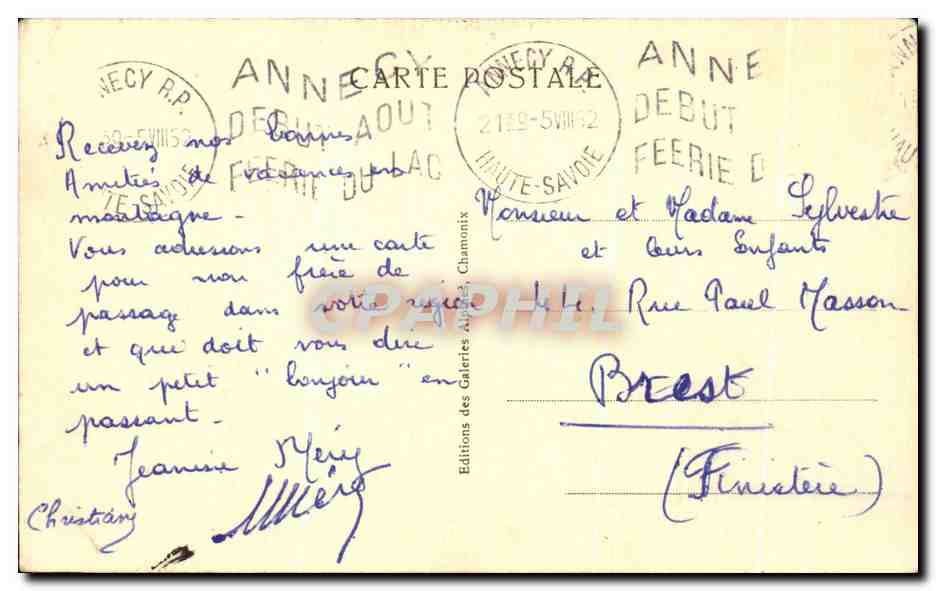 CARTE POSTALE
ANNECY R.P.
21H30-5VIII52
HAUTE-SAVOIE
ANNECY
DEBUT AOUT
FEERIE DU LAC
ANNE
DEBUT
FEERIE D
Recevez nos bonnes
Amitiés de vacances en
montagne -
Vous adressons une carte
pour mon frère de
passage dans votre région
et qui doit vous dire
un petit "bonjour" en
passant -
Jeannine Méry
Méry
Christiany
Editions des Galeries Alpines, Chamonix
Monsieur et Madame Sylvestre
et leurs Enfants
44. Rue Paul Masson
Brest
(Finistère)
CPAPHIL